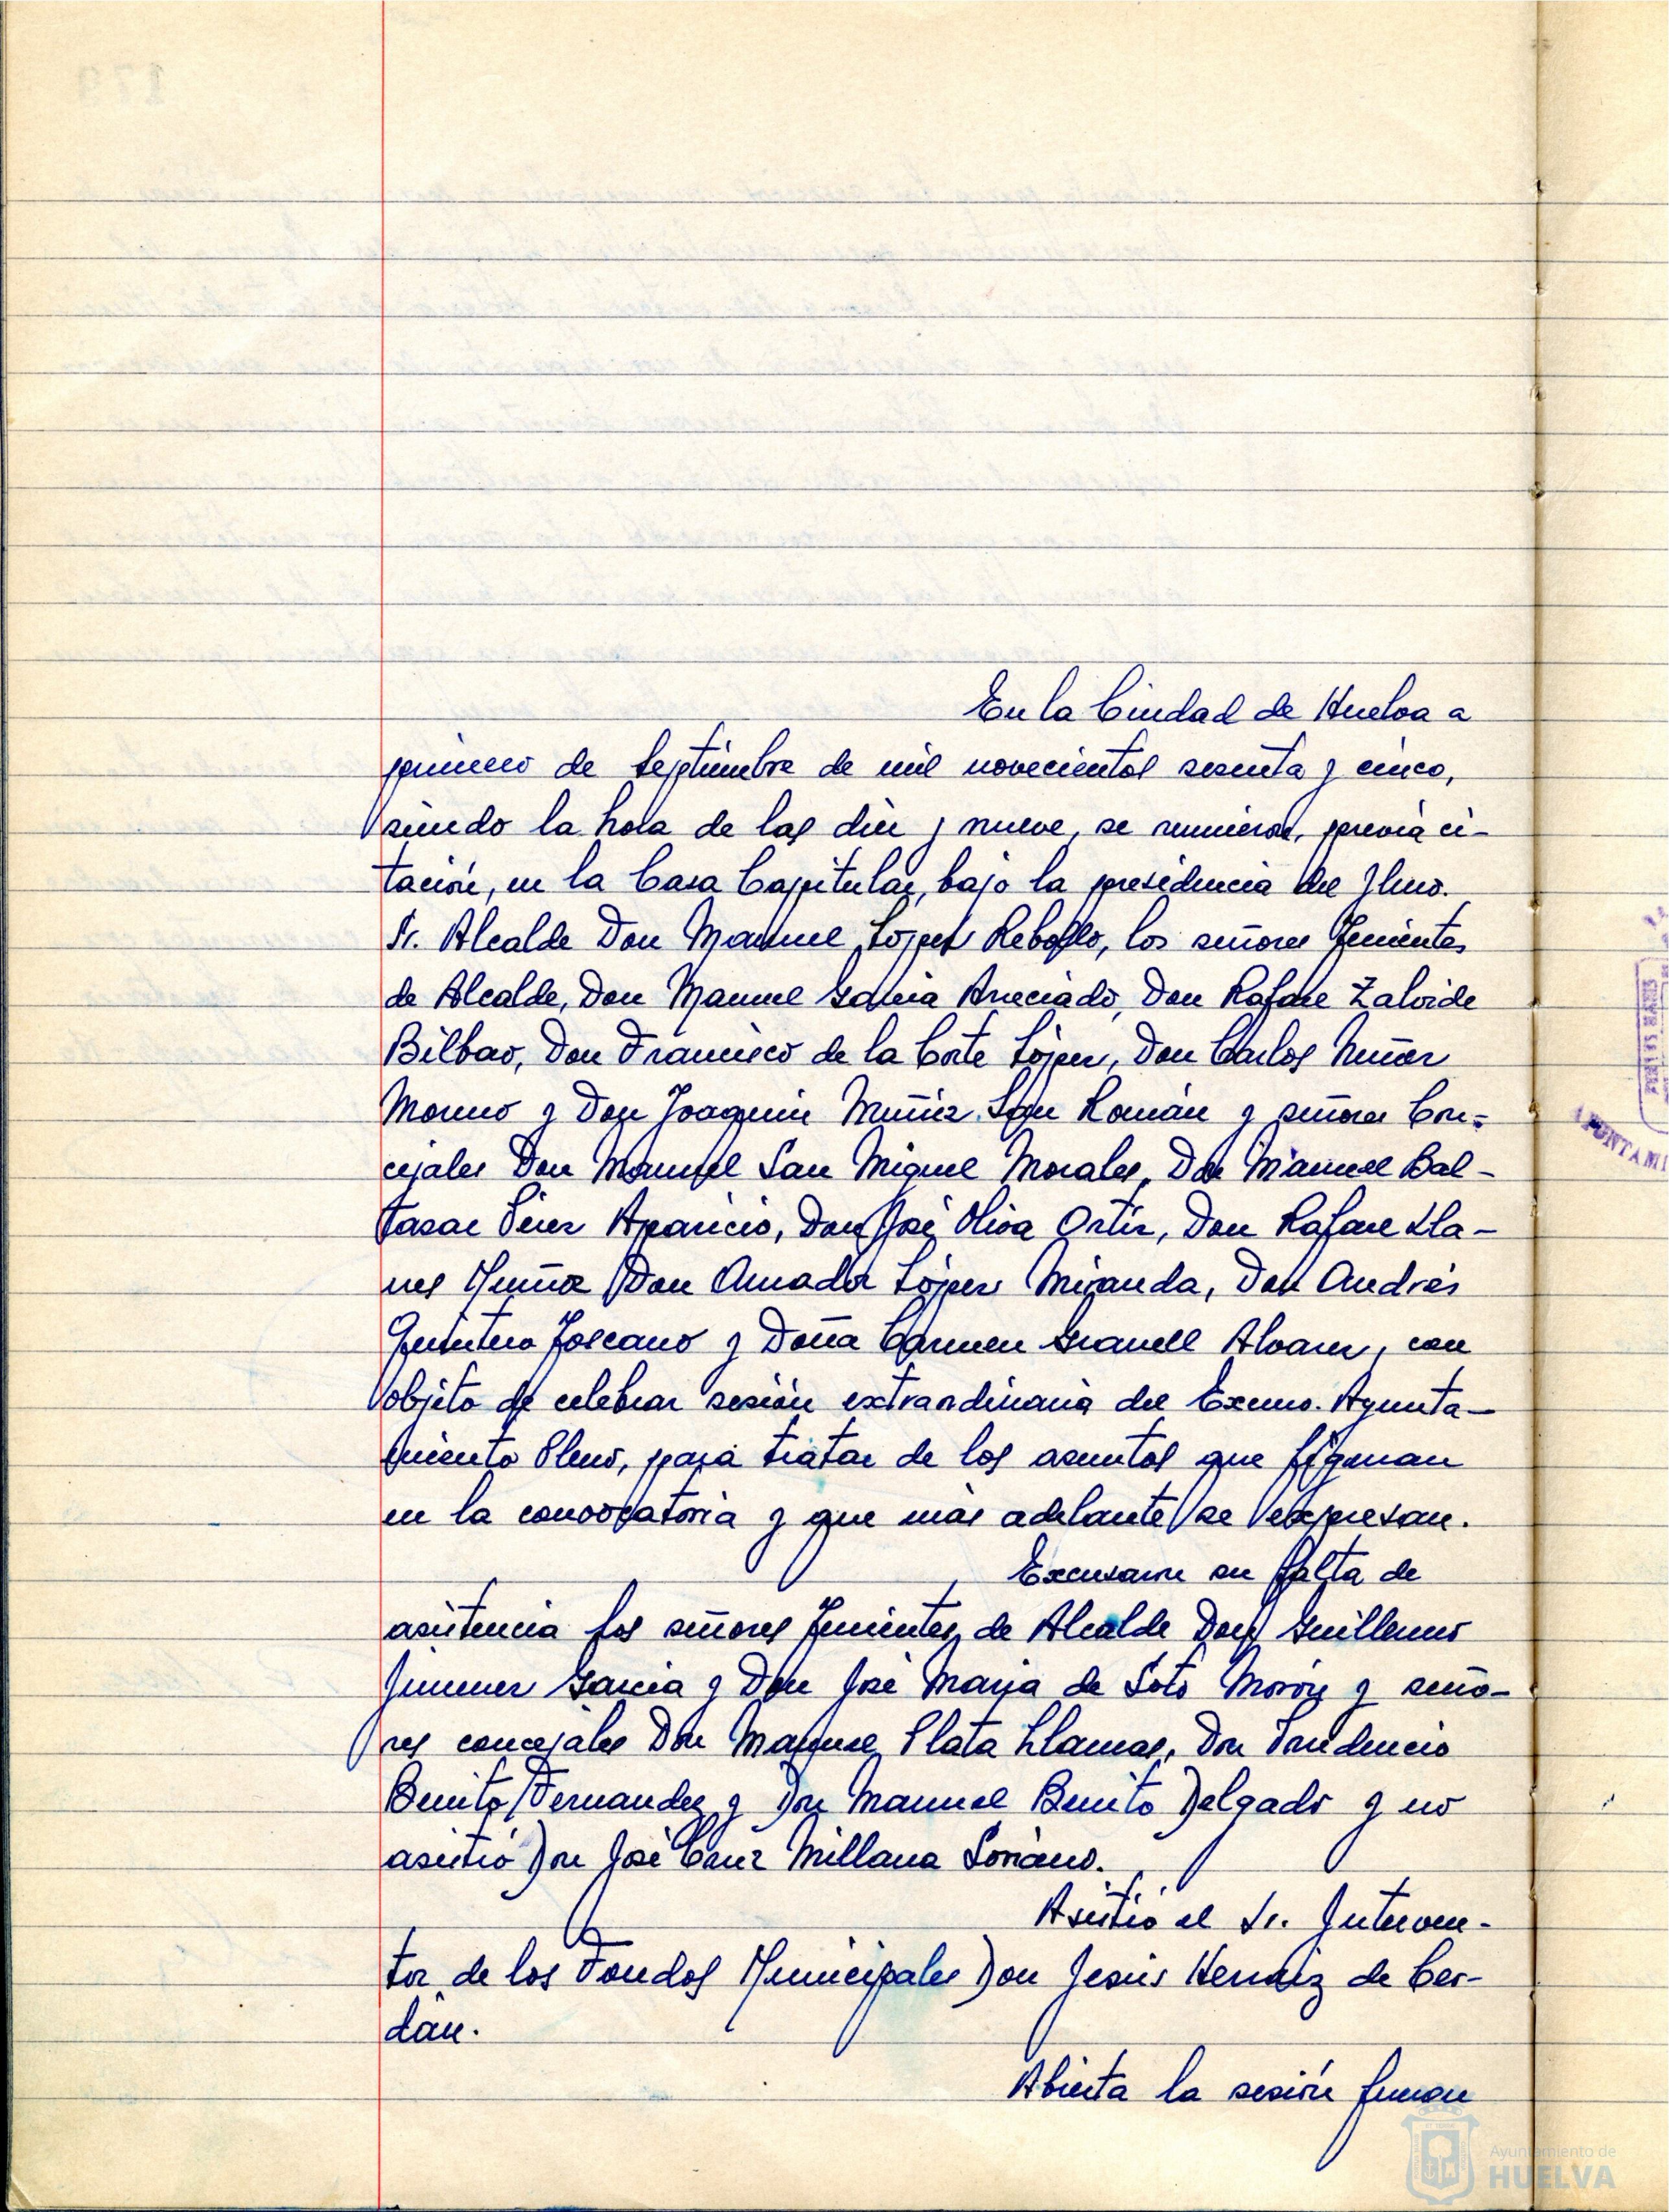 En la Ciudad de Huelva a
primero de Septiembre de mil novecientos sesenta y cinco,
siendo la hora de las diez y nueve, se reunieron, previa ci-
tación, en la Casa Capitular, bajo la presidencia del Ilmo.
Sr. Alcalde Don Manuel López Rebollo, los señores Tenientes
de Alcalde, Don Manuel García Arreciado, Don Rafael Zalvide
Bilbao, Don Francisco de la Corte López, Don Carlos Muñoz
Moreno y Don Joaquín Muñiz San Román y señores Con-
cejales Don Manuel San Miguel Morales, Don Manuel Bal-
tasar Pérez Aparicio, Don José Oliva Ortiz, Don Rafael Lla-
nes Muñoz Don Amador López Miranda, Don Andrés
Quintero Toscano y Doña Carmen Granell Alvarez, con
objeto de celebrar sesión extraordinaria del Excmo. Ayunta-
miento Pleno, para tratar de los asuntos que figuran
en la convocatoria y que más adelante se expresan.
Excusaron su falta de
asistencia los señores Tenientes de Alcalde Don Guillermo
Jimenez García y Don José María de Soto Morón y seño-
res concejales Don Manuel Plata Llamas, Don Prudencio
Benito Fernandez y Don Manuel Benito Delgado y no
asistió Don José Cruz Millana Soriano.
Asistió el Sr. Interven-
tor de los Fondos Municipales Don Jesús Hernaiz de Cer-
dán.
Abierta la sesión fueron
AYUNTAMI
Ayuntamiento de
HUELVA